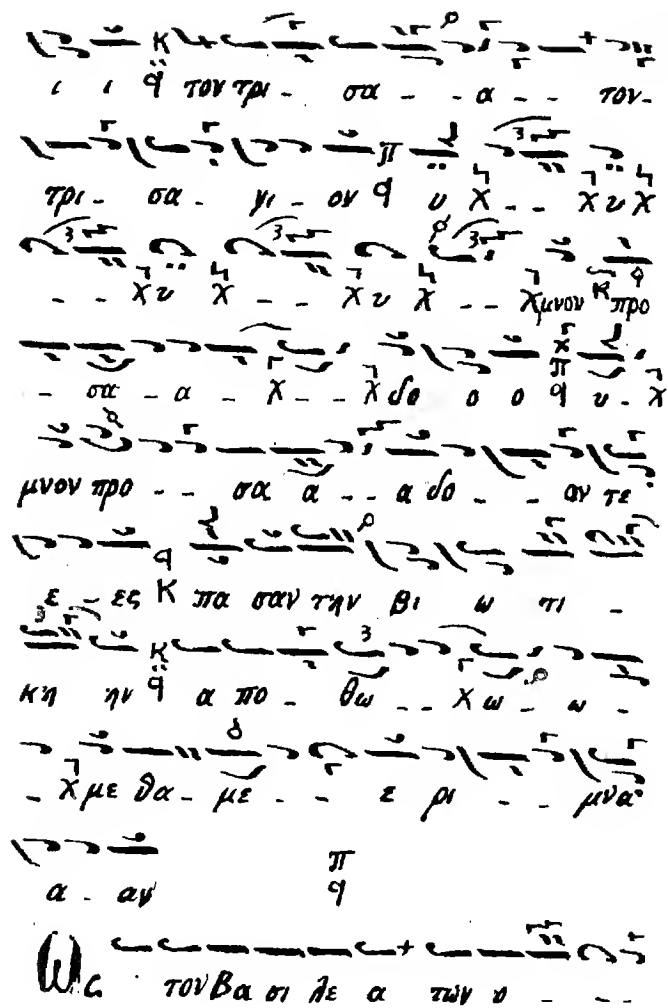 ι ι ϥ τον τρι - σα - - α - - τον -
τρι - σα - γι - ον ϥ υ χ - - χ υ χ
- - χ υ χ - - χ υ χ - - χ μνον προ
- σα - α - χ - - χ δο ο ο ϥ υ - χ
μνον προ - - σα α - - α δο - - ον τε
ε - ες κ πα σαν την βι ω τι -
κη ην ϥ α πο - θω - - χω - ω -
- χ με θα - με - - ε ρι - - μνα
α - αν ϥ
Ως τον Βα σι λε α των ο - - -